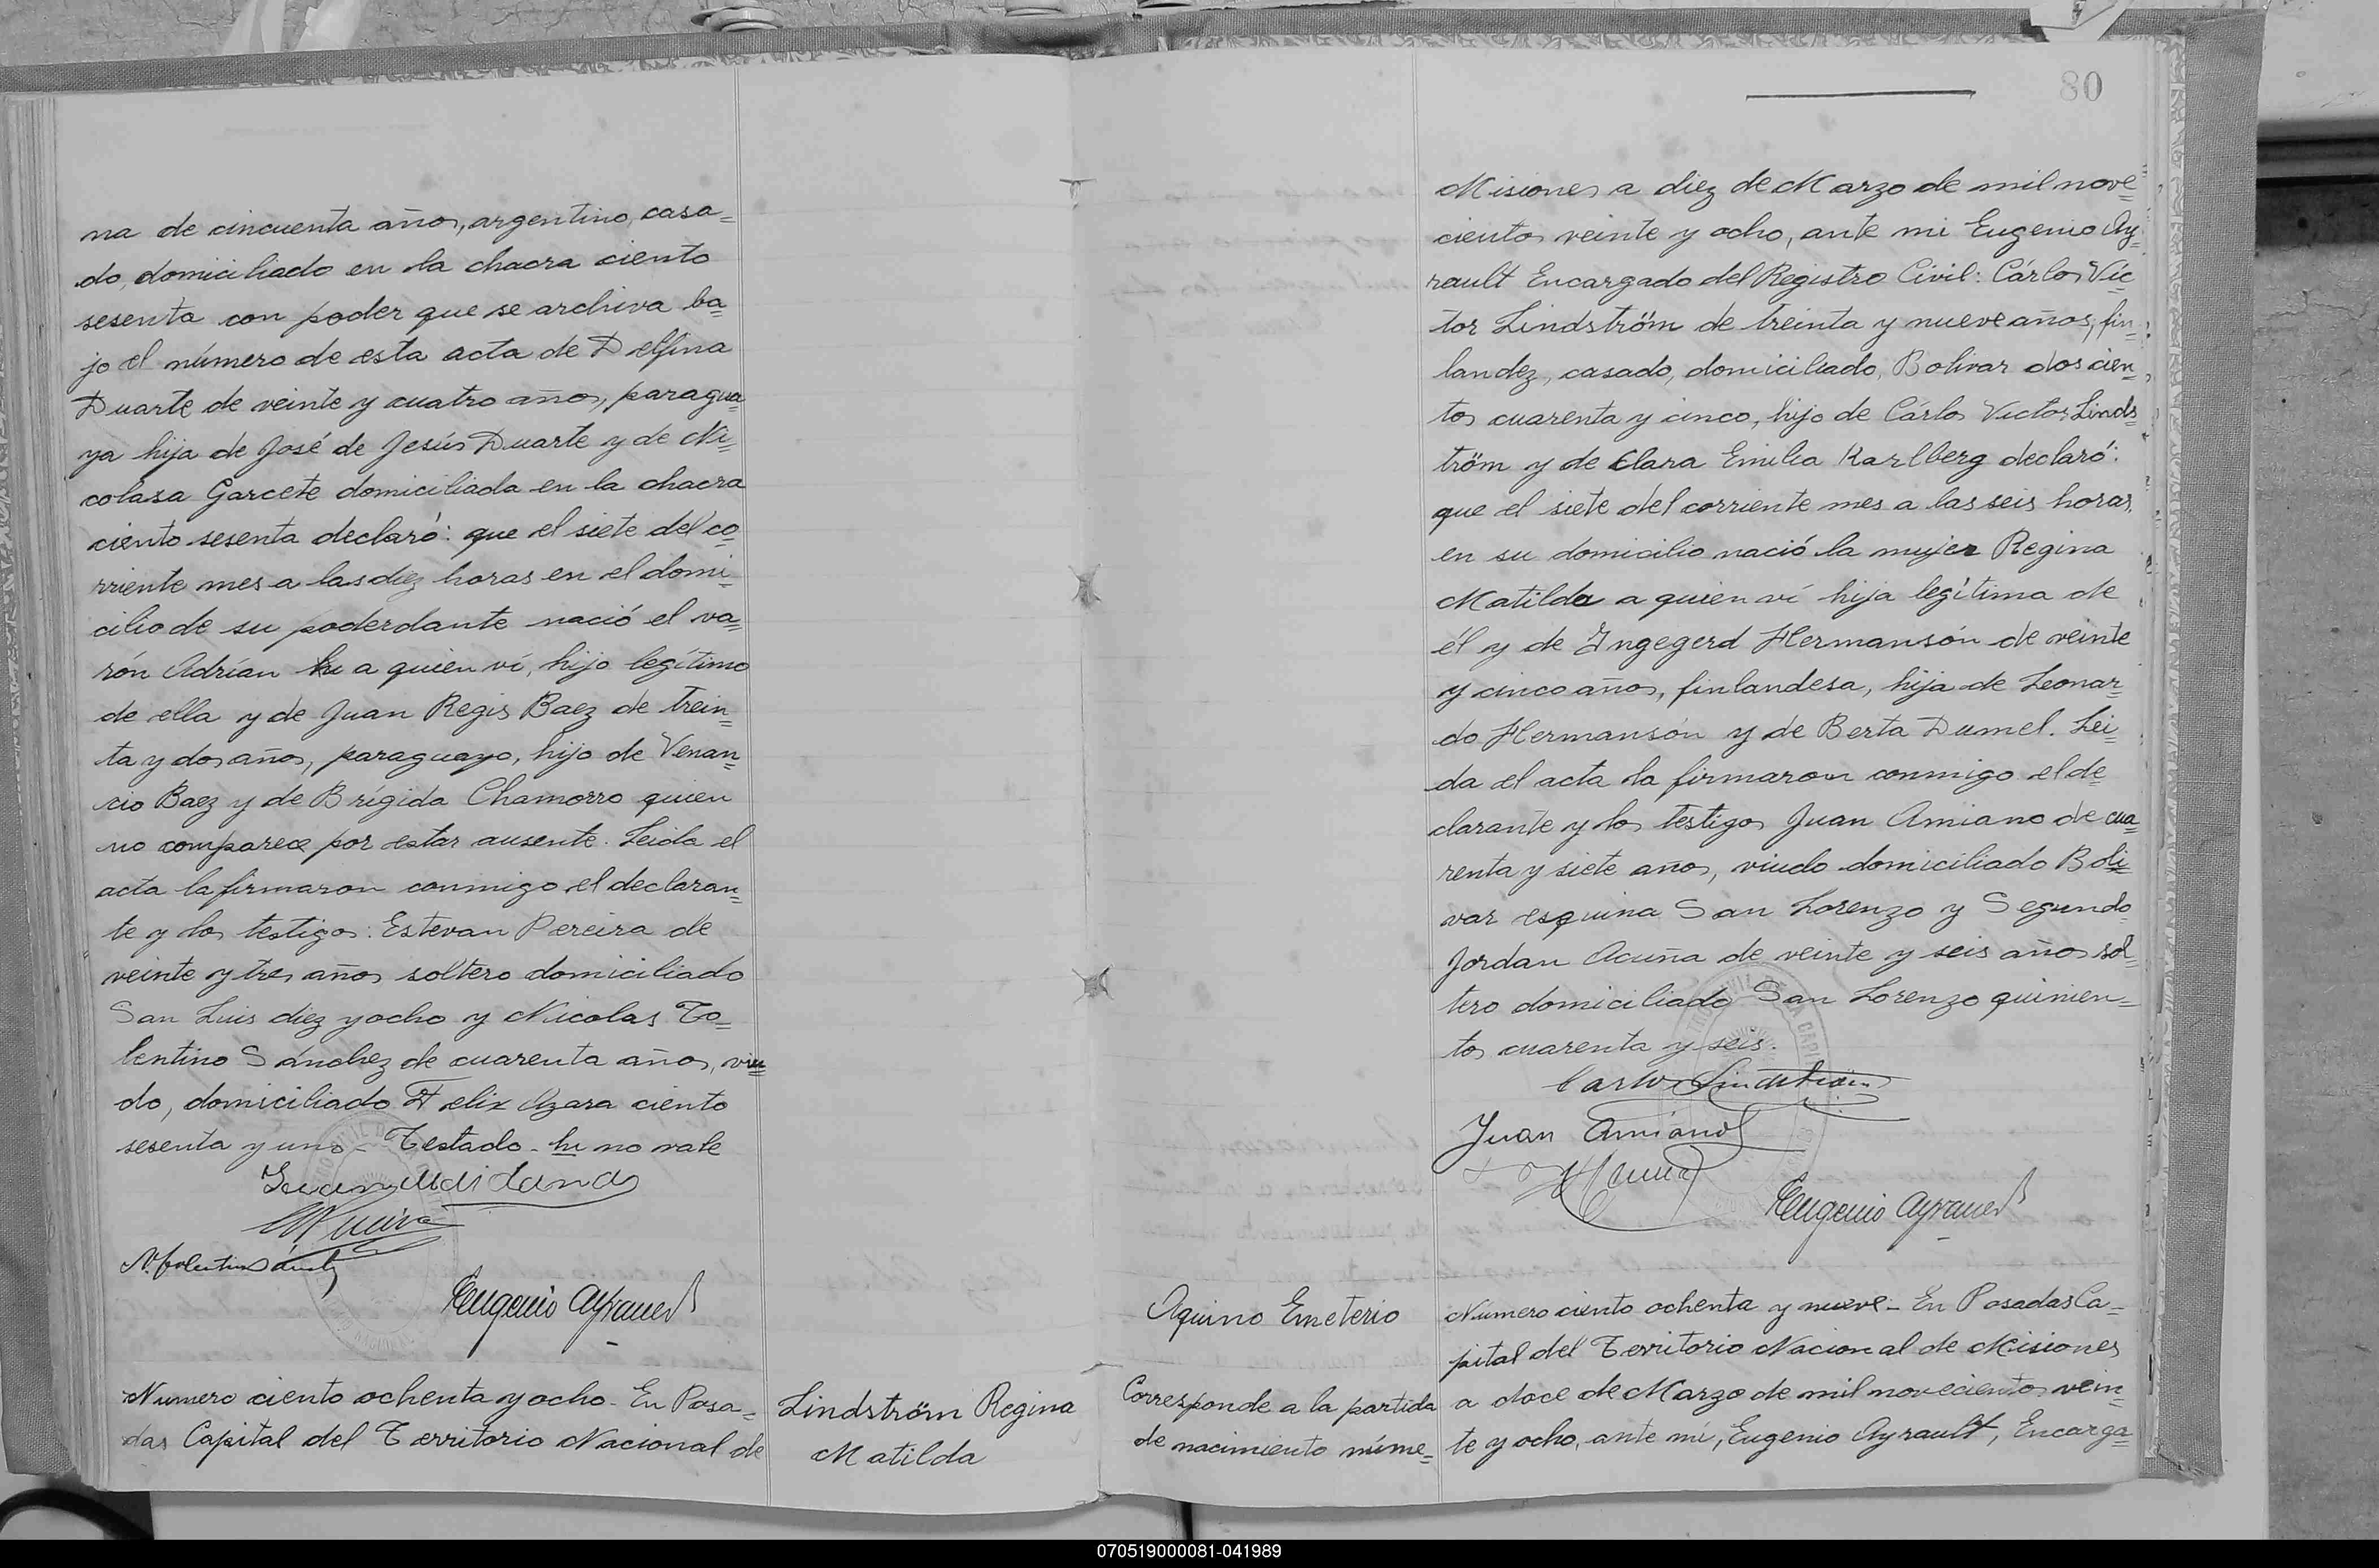 na de cincuenta años, argentino, casa=
do, domiciliado en la chacra ciento
sesenta con poder que se archiva ba=
jo el número de esta acta de Delfina
Duarte de veinte y cuatro años, paragua=
ya hija de José de Jesús Duarte y de Ni=
colasa Garcete domiciliada en la chacra
ciento sesenta declaró: que el siete del co=
rriente mes a las diez horas en el domi=
cilio de su poderdante nació el va=
rón Adrían hu a quien ví, hijo legítimo
de ella y de Juan Regis Baez de trein=
ta y dos años, paraguayo, hijo de Venan=
cio Baez y de Brígida Chamorro quien
no comparece por estar ausente. Leida el
acta la firmaron conmigo el declaran=
te y los testigos: Estevan Pereira de
veinte y tres años soltero domiciliado
San Luis diez y ocho y Nicolas To=
lentino Sánchez de cuarenta años, viu=
do, domiciliado Felix Azara ciento
sesenta y uno - Testado - hu no vale
Juan Maidana
Eugenio Ayrault
Numero ciento ochenta y ocho - En Posa=
das Capital del Territorio Nacional de
Lindström Regina
Matilda
80
Misiones a diez de Marzo de mil nove=
cientos veinte y ocho, ante mi Eugenio Ay=
rault Encargado del Registro Civil: Cárlos Víc=
tor Lindström de treinta y nueve años, fin=
landez, casado, domiciliado, Bolivar doscien=
tos cuarenta y cinco, hijo de Cárlos Victor Linds
tröm y de Clara Emilia Karlberg declaró:
que el siete del corriente mes a las seis horas
en su domicilio nació la mujer Regina
Matilda a quien ví hija legítima de
él y de Ingegerd Hermansón de veinte
y cinco años, finlandesa, hija de Leonar=
do Hermansón y de Berta Dumel. Lei=
da el acta la firmaron conmigo el de=
clarante y los testigos Juan Amiano de cua=
renta y siete años, viudo domiciliado Boli=
var esquina San Lorenzo y Segundo
Jordan Acuña de veinte y seis años sol=
tero domiciliado San Lorenzo quinien=
tos cuarenta y seis.
Carlos Lindström
Juan Amiano
Eugenio Ayrault
Aquino Emeterio
Corresponde a la partida
de nacimiento núme=
Número ciento ochenta y nueve - En Posadas Ca=
pital del Territorio Nacional de Misiones
a doce de Marzo de mil novecientos vein=
te y ocho, ante mí, Eugenio Ayrault, Encarga=
070519000081-041989